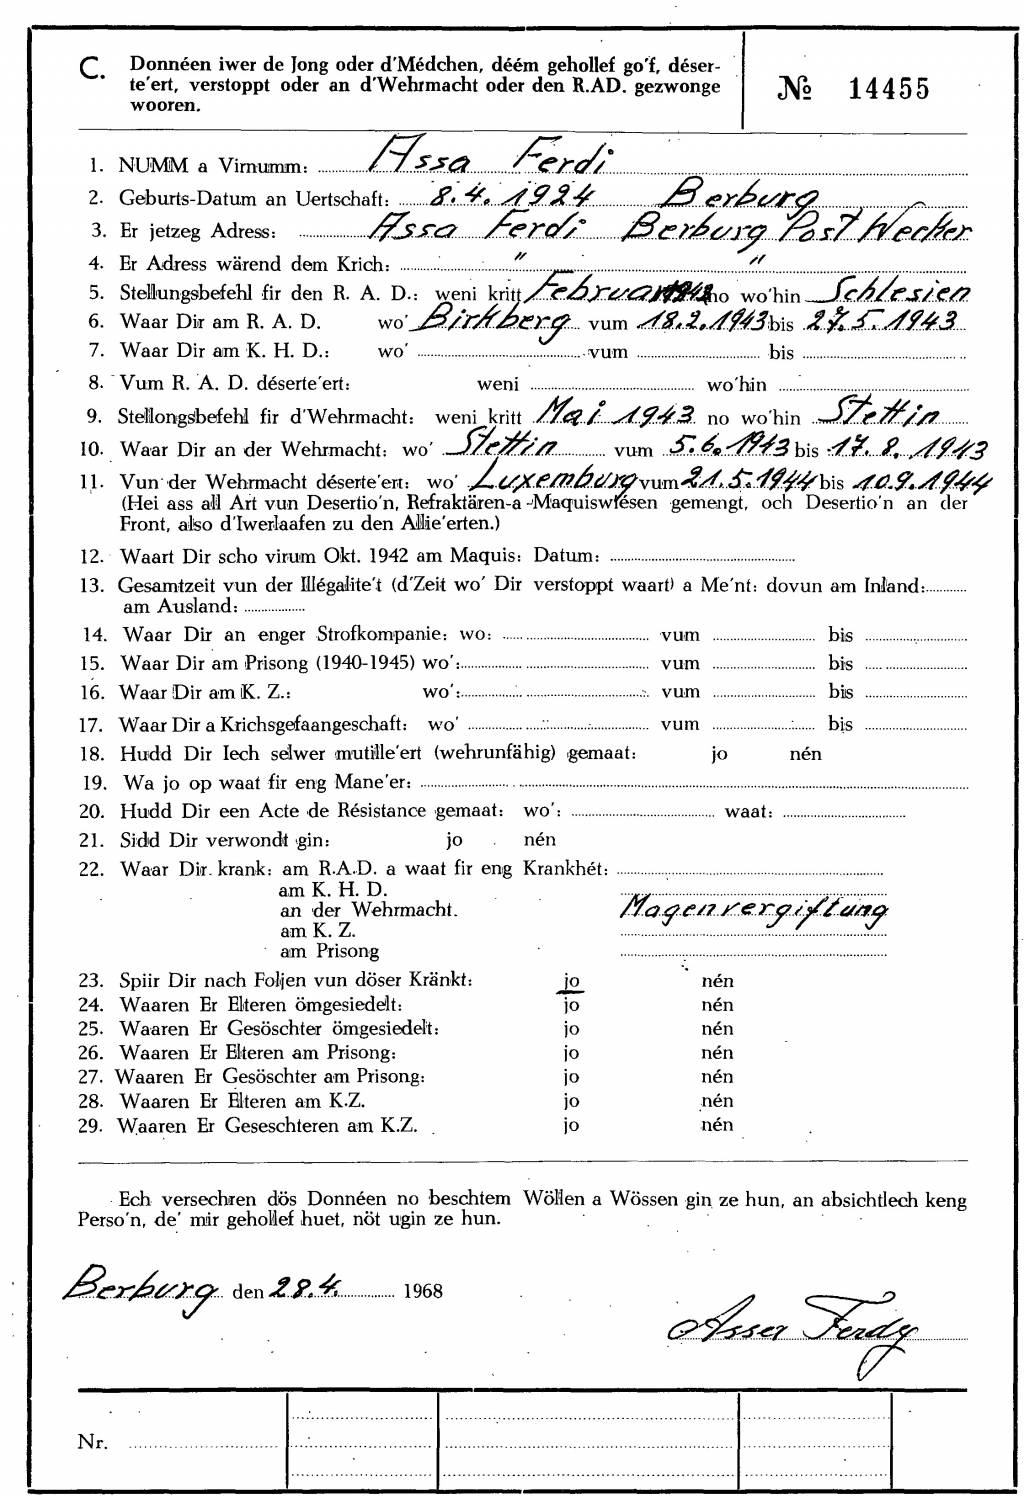 C. Donnéen iwer de Jong oder d'Médchen, déém gehollef go'f, déser-
te'ert, verstoppt oder an d'Wehrmacht oder den R.AD. gezwonge
wooren.
№ 14455
1. NUMM a Virnumm: Assa Ferdi
2. Geburts-Datum an Uertschaft: 8.4.1924 Berburg
3. Er jetzeg Adress: Assa Ferdi Berburg Post Wecker
4. Er Adress wärend dem Krich: " "
5. Stellungsbefehl fir den R. A. D.: weni kritt Februar 1943 no wo'hin Schlesien
6. Waar Dir am R. A. D. wo' Birkberg vum 18.2.1943 bis 27.5.1943
7. Waar Dir am K. H. D.: wo' vum bis
8. Vum R. A. D. déserte'ert: weni wo'hin
9. Stellongsbefehl fir d'Wehrmacht: weni kritt Mai 1943 no wo'hin Stettin
10. Waar Dir an der Wehrmacht: wo' Stettin vum 5.6.1943 bis 17.8.1943
11. Vun der Wehrmacht déserte'ert: wo' Luxemburg vum 21.5.1944 bis 10.9.1944
(Hei ass all Art vun Desertio'n, Refraktären-a-Maquiswiésen gemengt, och Desertio'n an der
Front, also d'Iwerlaafen zu den Allie'erten.)
12. Waart Dir scho virum Okt. 1942 am Maquis: Datum:
13. Gesamtzeit vun der Illégalite't (d'Zeit wo' Dir verstoppt waart) a Me'nt: dovun am Inland:
am Ausland:
14. Waar Dir an enger Strofkompanie: wo: vum bis
15. Waar Dir am Prisong (1940-1945) wo': vum bis
16. Waar Dir am K. Z.: wo': vum bis
17. Waar Dir a Krichsgefaangeschaft: wo' vum bis
18. Hudd Dir Iech selwer mutille'ert (wehrunfähig) gemaat: jo nén
19. Wa jo op waat fir eng Mane'er:
20. Hudd Dir een Acte de Résistance gemaat: wo': waat:
21. Sidd Dir verwondt gin: jo nén
22. Waar Dir krank: am R.A.D. a waat fir eng Krankhét:
am K. H. D.
an der Wehrmacht. Magenvergiftung
am K. Z.
am Prisong
23. Spiir Dir nach Foljen vun döser Kränkt: jo nén
24. Waaren Er Elteren ömgesiedelt: jo nén
25. Waaren Er Gesöschter ömgesiedelt: jo nén
26. Waaren Er Elteren am Prisong: jo nén
27. Waaren Er Gesöschter am Prisong: jo nén
28. Waaren Er Elteren am K.Z. jo nén
29. Waaren Er Geseschteren am K.Z. jo nén
Ech versechren dös Donnéen no beschtem Wöllen a Wössen gin ze hun, an absichtlech keng
Perso'n, de' mir gehollef huet, nöt ugin ze hun.
Berburg den 28.4. 1968
Assa Ferdy
Nr.